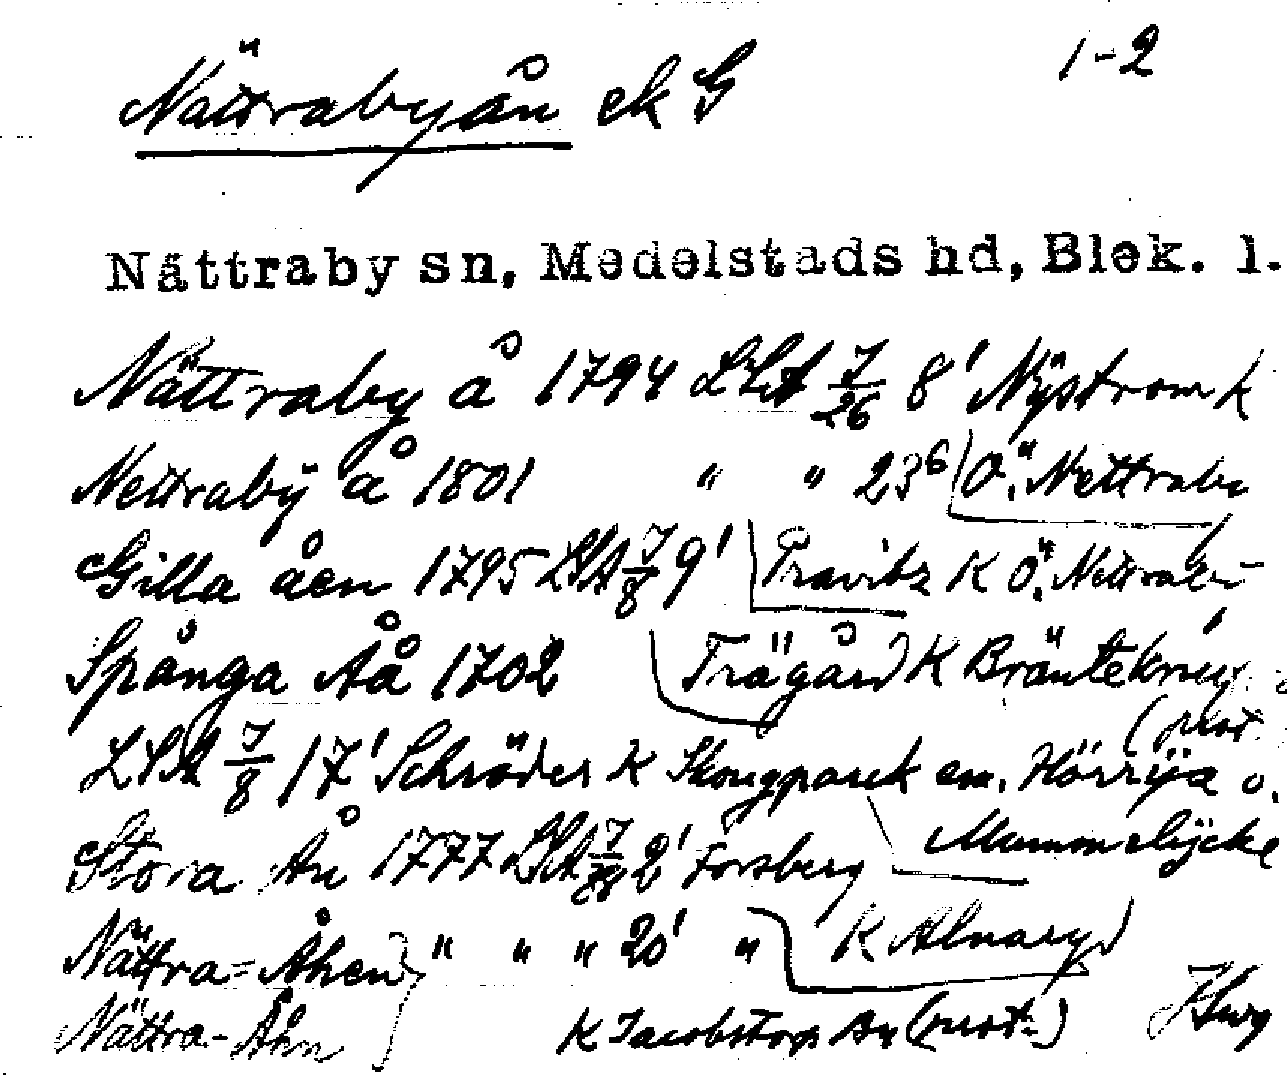 Nättrabyån ek G 1-2
Nättraby sn, Medelstads hd, Blek. l.
Nättraby å 1794 LSA 7/26 8' Nÿstrom k
Nettrabÿ å 1801 " " 23⁶ Ö. Nettraby
Gilla åen 1795 LSA 7/8 9' Pravitz K Ö. Nettraby
Spånga Åå 1702 Trägård K Bräntekrug
LSA 7/8 17' Schröder K Skougparck em. Hörrÿa o.
(prot.
Stora Ån 1777 LSA 7/28 2' Forsberg Mummelÿcke
Nättra=Åhen " " " 20' " K Alnaryd
Nättra-Åhn K Jacobstorp Ay (prot.)